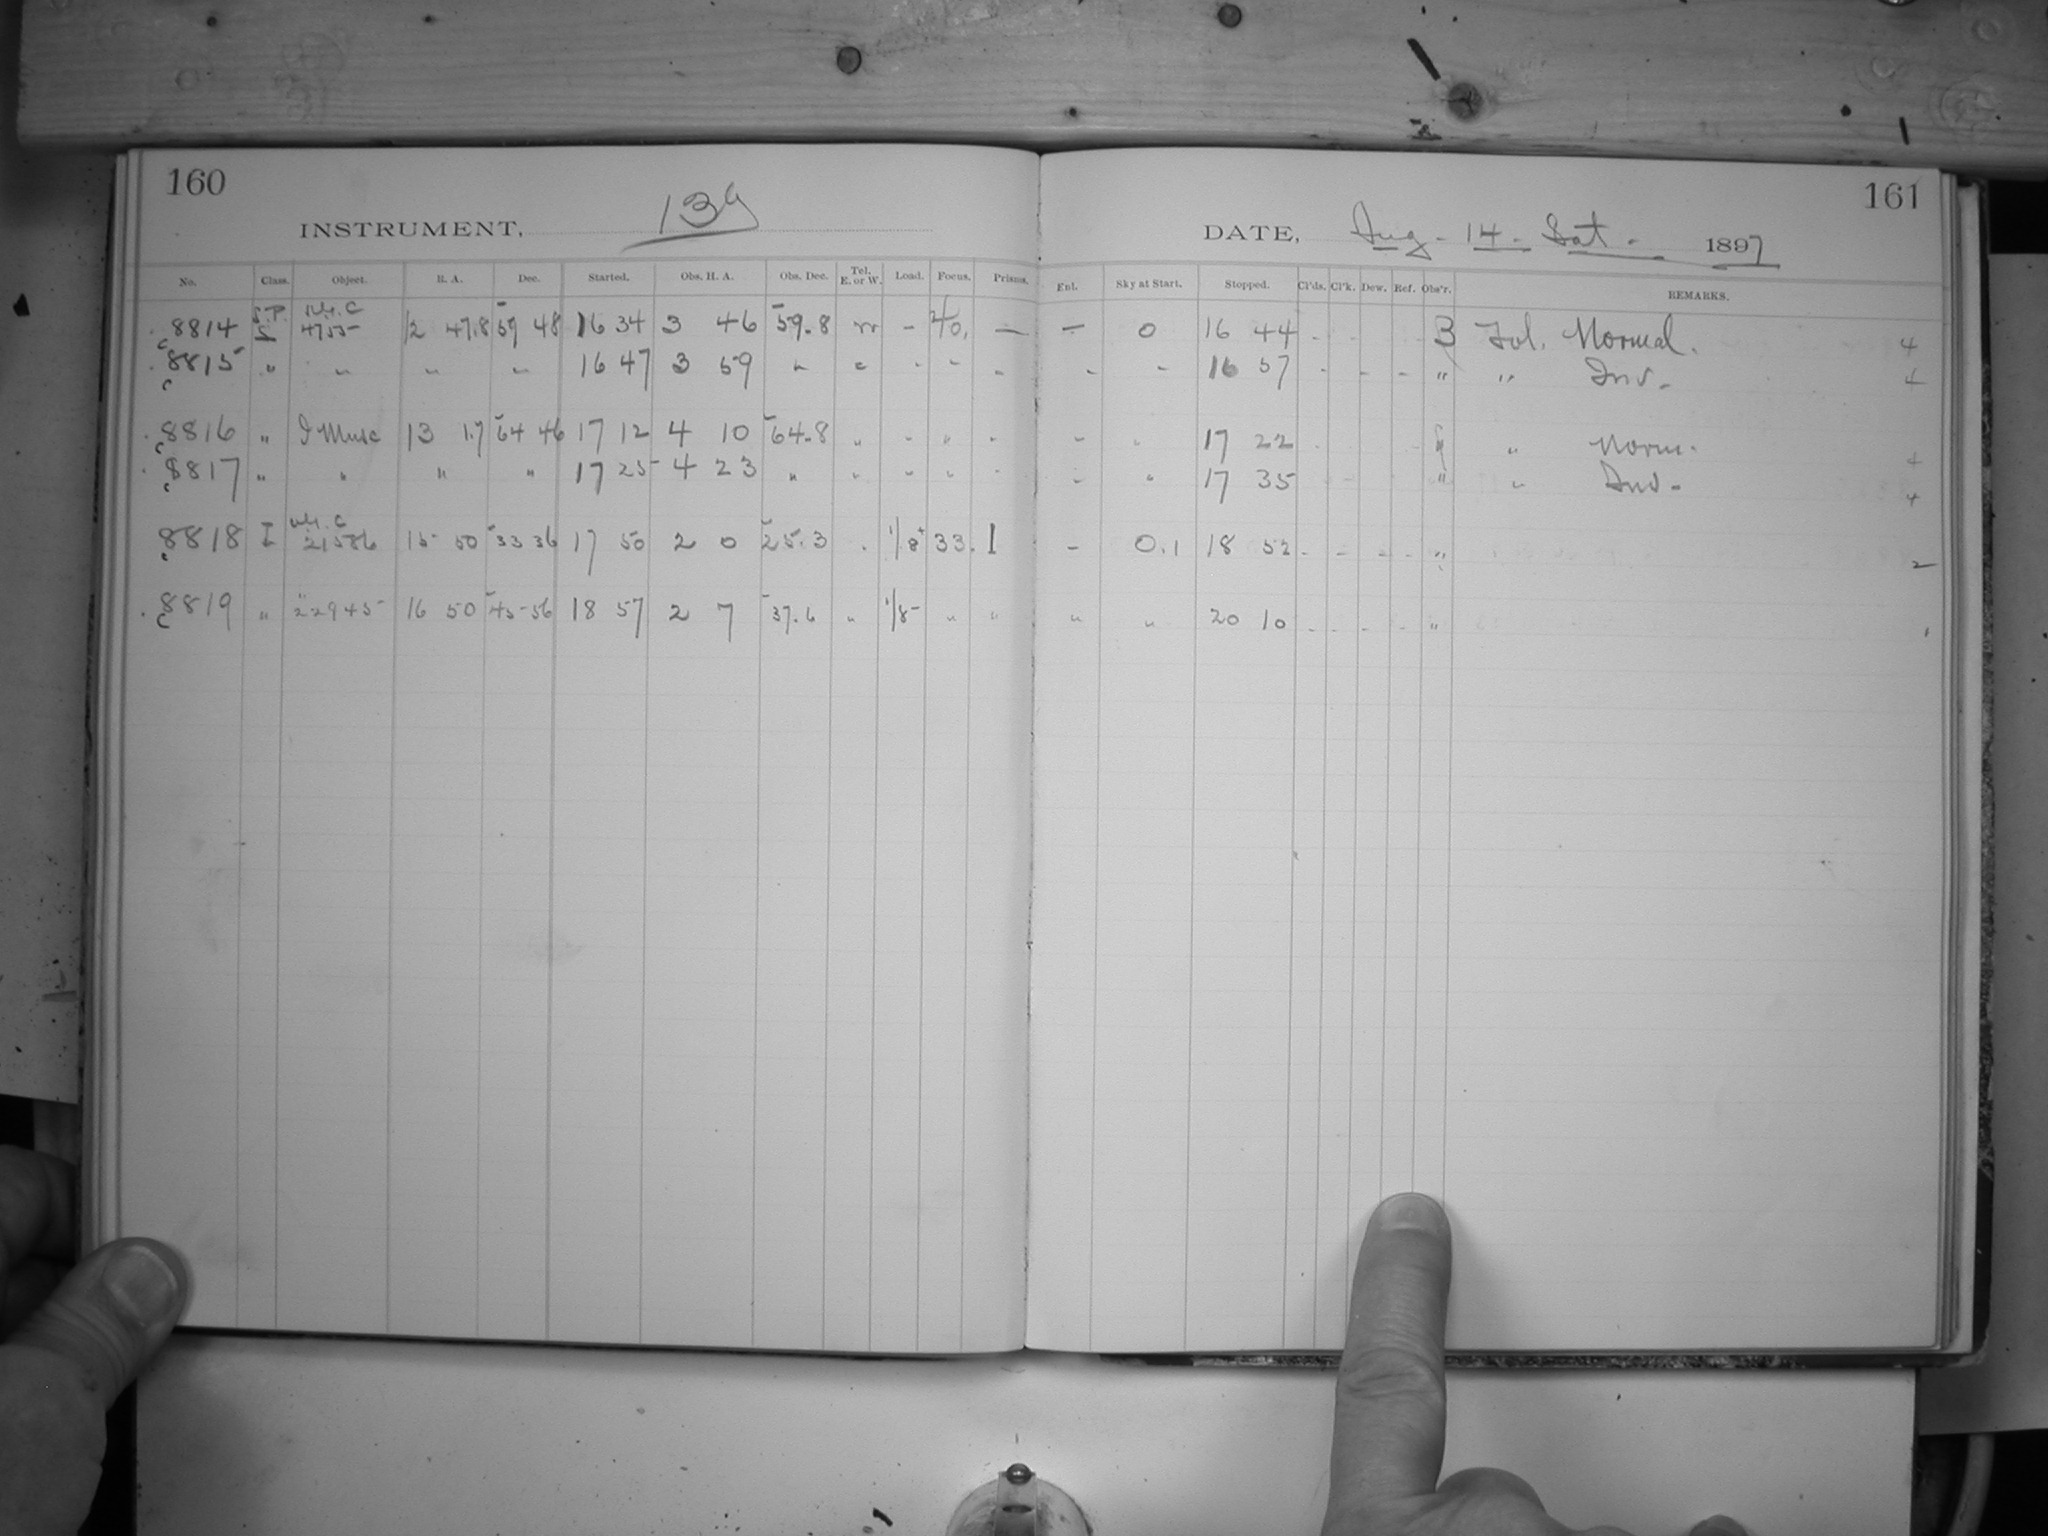 160
161
INSTRUMENT, 139
DATE, Aug. 14. Sat. 1897
No. Class. Object. R. A. Dec. Started. Obs. H. A. Obs. Dec. Tel. E. or W. Load. Focus. Prisms.
Enl. Sky at Start. Stopped. Cl'ds. Cl'k. Dew. Ref. Obs'r. REMARKS.
8814 S.P. 5 W. C 4755 12 47.8 -59 48 16 34 3 46 -59.8 W - 40. — — 0 16 44 - - - - B Normal. 4
8815 " " " " 16 47 3 59 " " - " - - - 16 57 - - - " " Inv. 4
8816 " Musc 13 1.7 -64 46 17 12 4 10 -64.8 " - " - - " 17 22 - - " Norm. 4
8817 " " " " 17 25 4 23 " " " " - - " 17 35 - - " " Inv. 4
8818 I W. C 21586 15 50 -33 36 17 50 2 0 -25.3 . 1/8 33. 1 - 0.1 18 52 - - - - " 2
8819 " 22945 16 50 -45 56 18 57 2 7 -37.6 " 1/8 " " " " 20 10 - - - - " 1